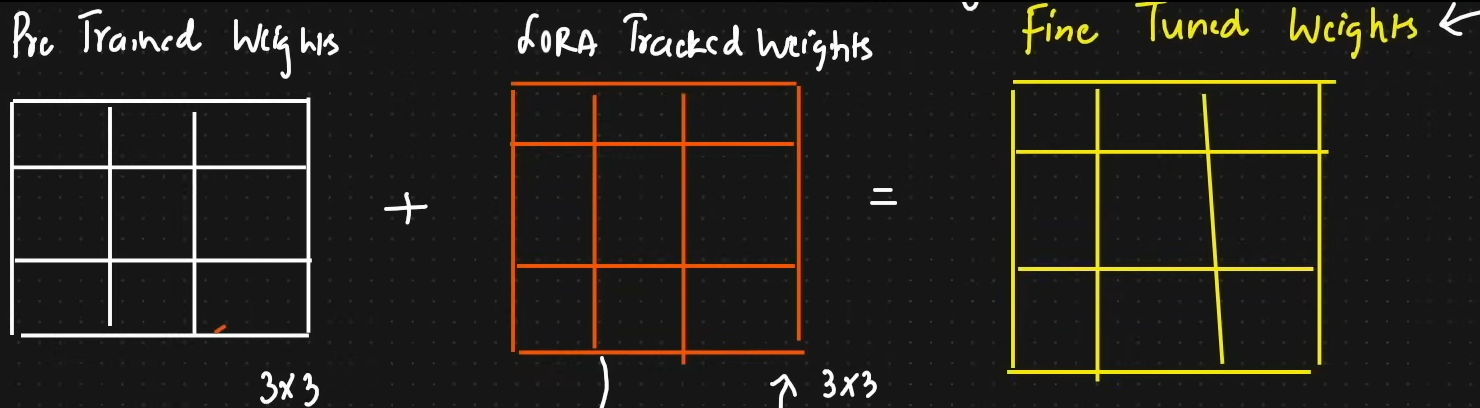 Pre Trained Weights
+
LORA Tracked Weights
=
Fine Tuned Weights
3×3
3×3